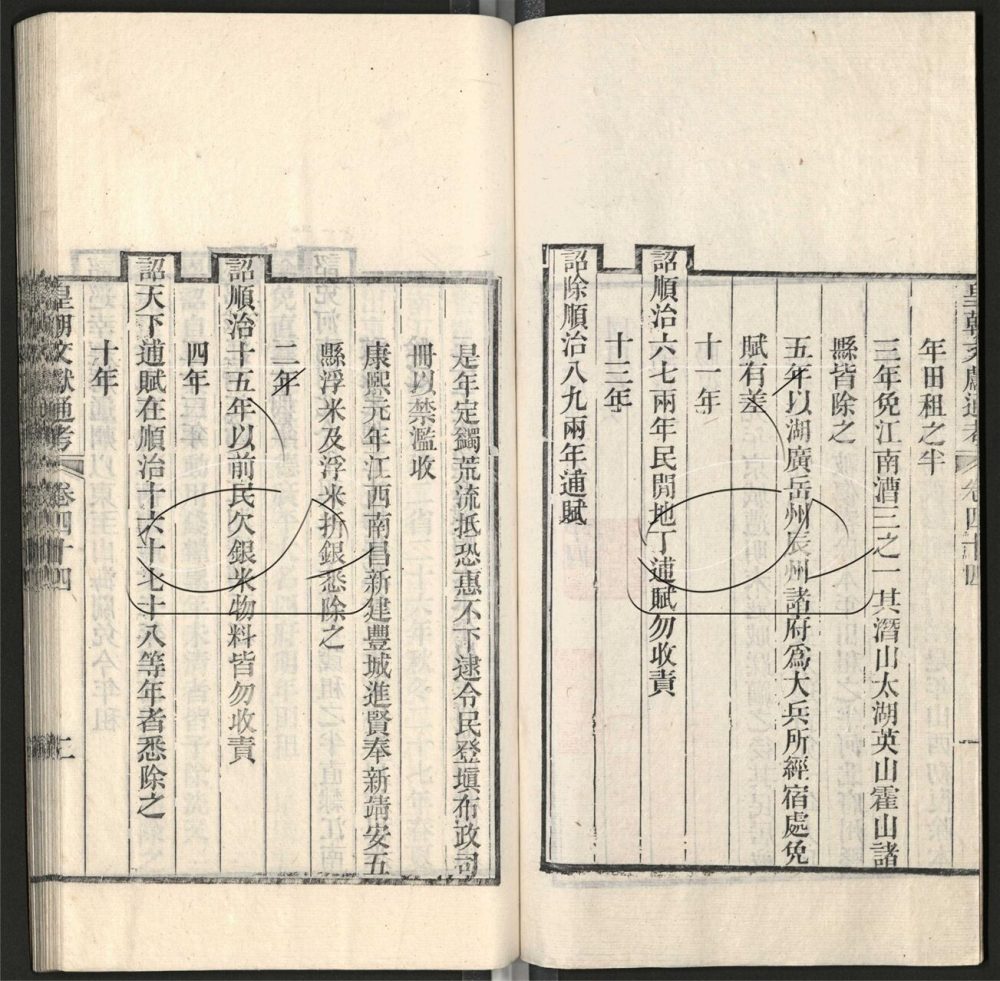 皇朝文獻通考 卷四十四
年田租之半
三年免江南漕三之一其潛山太湖英山霍山諸
縣皆除之
五年以湖廣岳州辰州諸府爲大兵所經宿處免
賦有差
十一年
詔順治六七兩年民閒地丁逋賦勿收責
十三年
詔除順治八九兩年逋賦
是年定蠲荒流抵恐惠不下逮令民登塡布政司
冊以禁濫收
康熙元年江西南昌新建豐城進賢奉新靖安五
縣浮米及浮米折銀悉除之
二年
詔順治十五年以前民欠銀米物料皆勿收責
四年
詔天下逋賦在順治十六十七十八等年者悉除之
十年
皇朝文獻通考 卷四十四